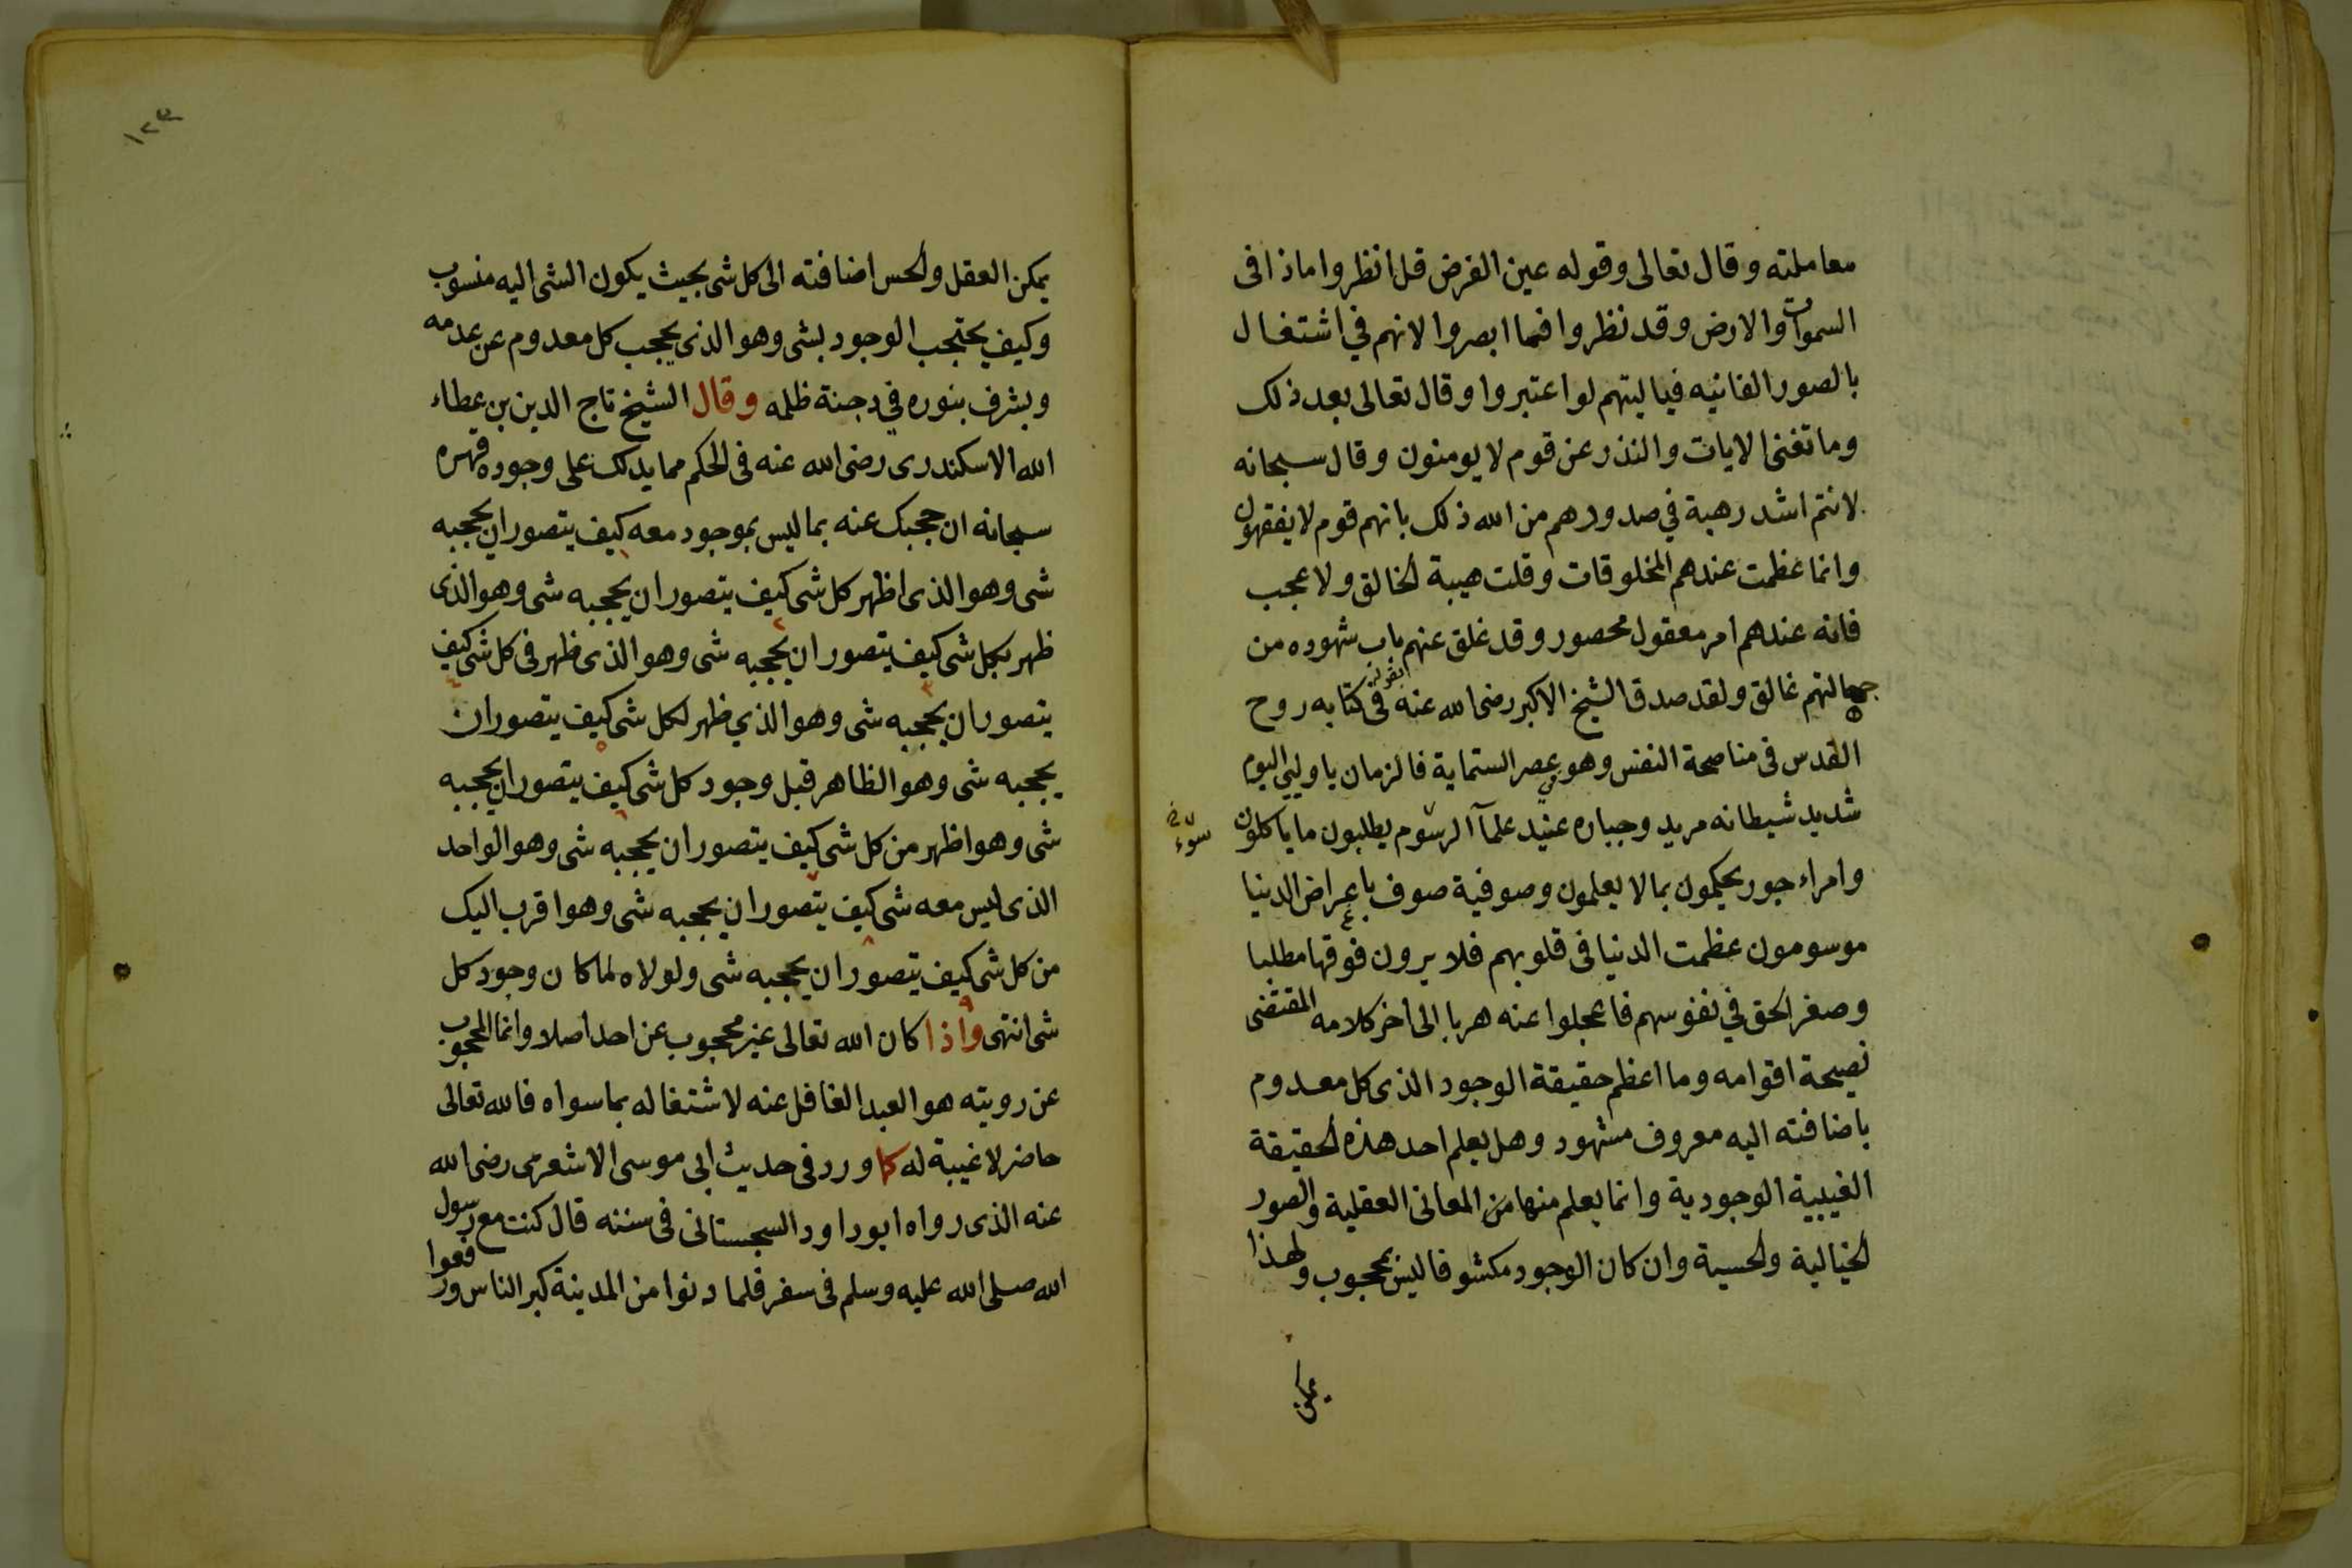 معاملته وقال تعالى وقوله عين الفرض قل انظروا ماذا فى
السموات والارض وقد نظروا فما ابصروا لانهم في اشتغال
بالصور الفانيه فياليتهم لو اعتبروا وقال تعالى بعد ذلك
وما تغنى الايات والنذر عن قوم لا يومنون وقال سبحانه
لانتم اشد رهبة في صدورهم من الله ذلك بانهم قوم لا يفقهون
وانما عظمت عندهم المخلوقات وقلت هيبة الخالق ولا عجب
فانه عندهم امر معقول محصور وقد غلق عنهم باب شهوده من
جهالتهم غالق ولقد صدق الشيخ الاكبر رضى الله عنه فى كتابه روح
القدس فى مناصحة النفس وهو عصر الستماية فالزمان ياوليى اليوم
شديد شيطانه مريد وجباره عنيد علمآ الرسوم يطلبون ما ياكلون
سوء
وامراء جور يحكمون بما لا يعلمون وصوفية صوف باعراض الدنيا
موسومون عظمت الدنيا فى قلوبهم فلا يرون فوقها مطلبا
وصغر الحق في نفوسهم فاعجلوا عنه هربا الى اخر كلامه المقتضى
نصيحة اقوامه وما اعظم حقيقة الوجود الذى كل معدوم
باضافته اليه معروف مشهود وهل يعلم احد هذه الحقيقة
الغيبية الوجودية وانما يعلم منها من المعانى العقلية والصور
الخيالية والحسية وان كان الوجود مكشوفا ليس بمحجوب ولهذا
يمكن
١٢٣
يمكن العقل والحس اضافته الى كل شى بحيث يكون الشى اليه منسوب
وكيف يحتجب الوجود بشى وهو الذى يحجب كل معدوم عن عدمه
ويشرف بنوره في دجنة ظلمه وقال الشيخ تاج الدين بن عطاء
الله الاسكندرى رضى الله عنه فى الحكم مما يدلك على وجوده قهره
سبحانه ان حجبك عنه بما ليس بموجود معه كيف يتصور ان يحجبه
شى وهو الذى اظهر كل شى كيف يتصور ان يحجبه شى وهو الذى
ظهر بكل شى كيف يتصور ان يحجبه شى وهو الذى ظهر فى كل شى كيف
يتصور ان يحجبه شى وهو الذي ظهر لكل شى كيف يتصور ان
يحجبه شى وهو الظاهر قبل وجود كل شى كيف يتصور ان يحجبه
شى وهو اظهر من كل شى كيف يتصور ان يحجبه شى وهو الواحد
الذى ليس معه شى كيف يتصور ان يحجبه شى وهو اقرب اليك
من كل شى كيف يتصور ان يحجبه شى ولولاه لما كان وجود كل
شى انتهى واذا كان الله تعالى غير محجوب عن احد اصلا وانما المحجوب
عن رويته هو العبد الغافل عنه لاشتغاله بما سواه فالله تعالى
حاضر لا غيبة له كما ورد فى حديث ابى موسى الاشعرى رضى الله
عنه الذى رواه ابو داود السجستانى فى سننه قال كنت مع رسول
الله صلى الله عليه وسلم فى سفر فلما دنوا من المدينة كبر الناس ورفعوا